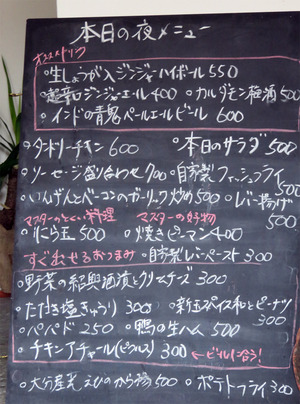 本日の夜メニュー
オススメドリンク
○生しょうが入ジンジャーハイボール 550
○超辛口ジンジャーエール 400 ○カルダモン梅酒 500
○インドの青鬼ペールエールビール 600
○タンドリーチキン 600 ○本日のサラダ 500
○ソーセージ盛り合わせ 700 ○自家製フィッシュフライ 500
○いんげんとベーコンのガーリック炒め 500 ○レバー揚げ 500
マスターのとくい料理 マスターの好物
○にら玉 500 ○焼きピーマン 400
すぐ出せるおつまみ ○自家製レバーペースト 300
○野菜の紹興酒漬とクリームチーズ 300
○たたき塩きゅうり 300 ○新玉スパイス和とピーナツ 300
○パパド 250 ○鴨の生ハム 500
○チキンアチャール(ピクルス) 300 ←ビールに合う!
○大分産 えびのから揚 500 ○ポテトフライ 300